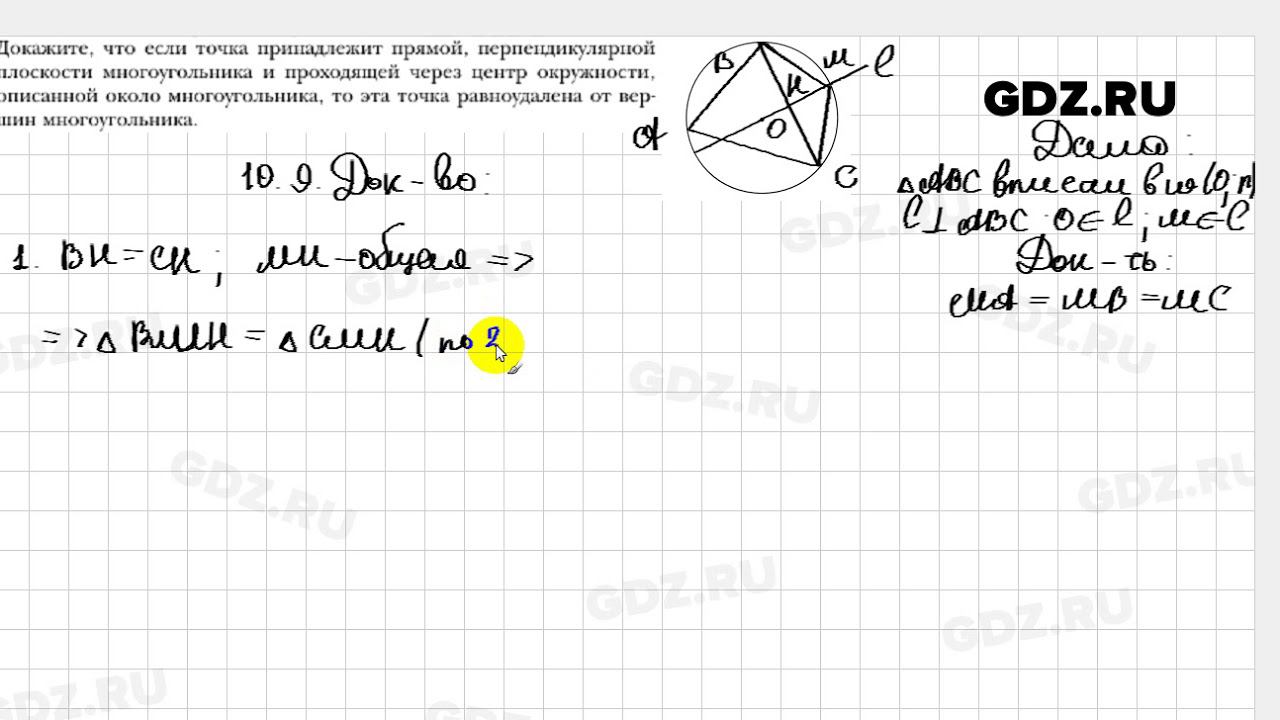 Докажите, что если точка принадлежит прямой, перпендикулярной
плоскости многоугольника и проходящей через центр окружности,
описанной около многоугольника, то эта точка равноудалена от вер-
шин многоугольника.
B
H
M
l
O
A
C
GDZ.RU
Дано:
△ABC вписан в
l⊥ABC; O∈l; M∈l
Док-ть:
MA = MB = MC
10.9. Док-во:
1. BH = CH; MH - общая =>
=> △BMH = △CMH (по 2
GDZ.RU
GDZ.RU
GDZ.RU
GDZ.RU
GDZ.RU
GDZ.RU
GDZ.RU
GDZ.RU
GDZ.RU
GDZ.RU
GDZ.RU